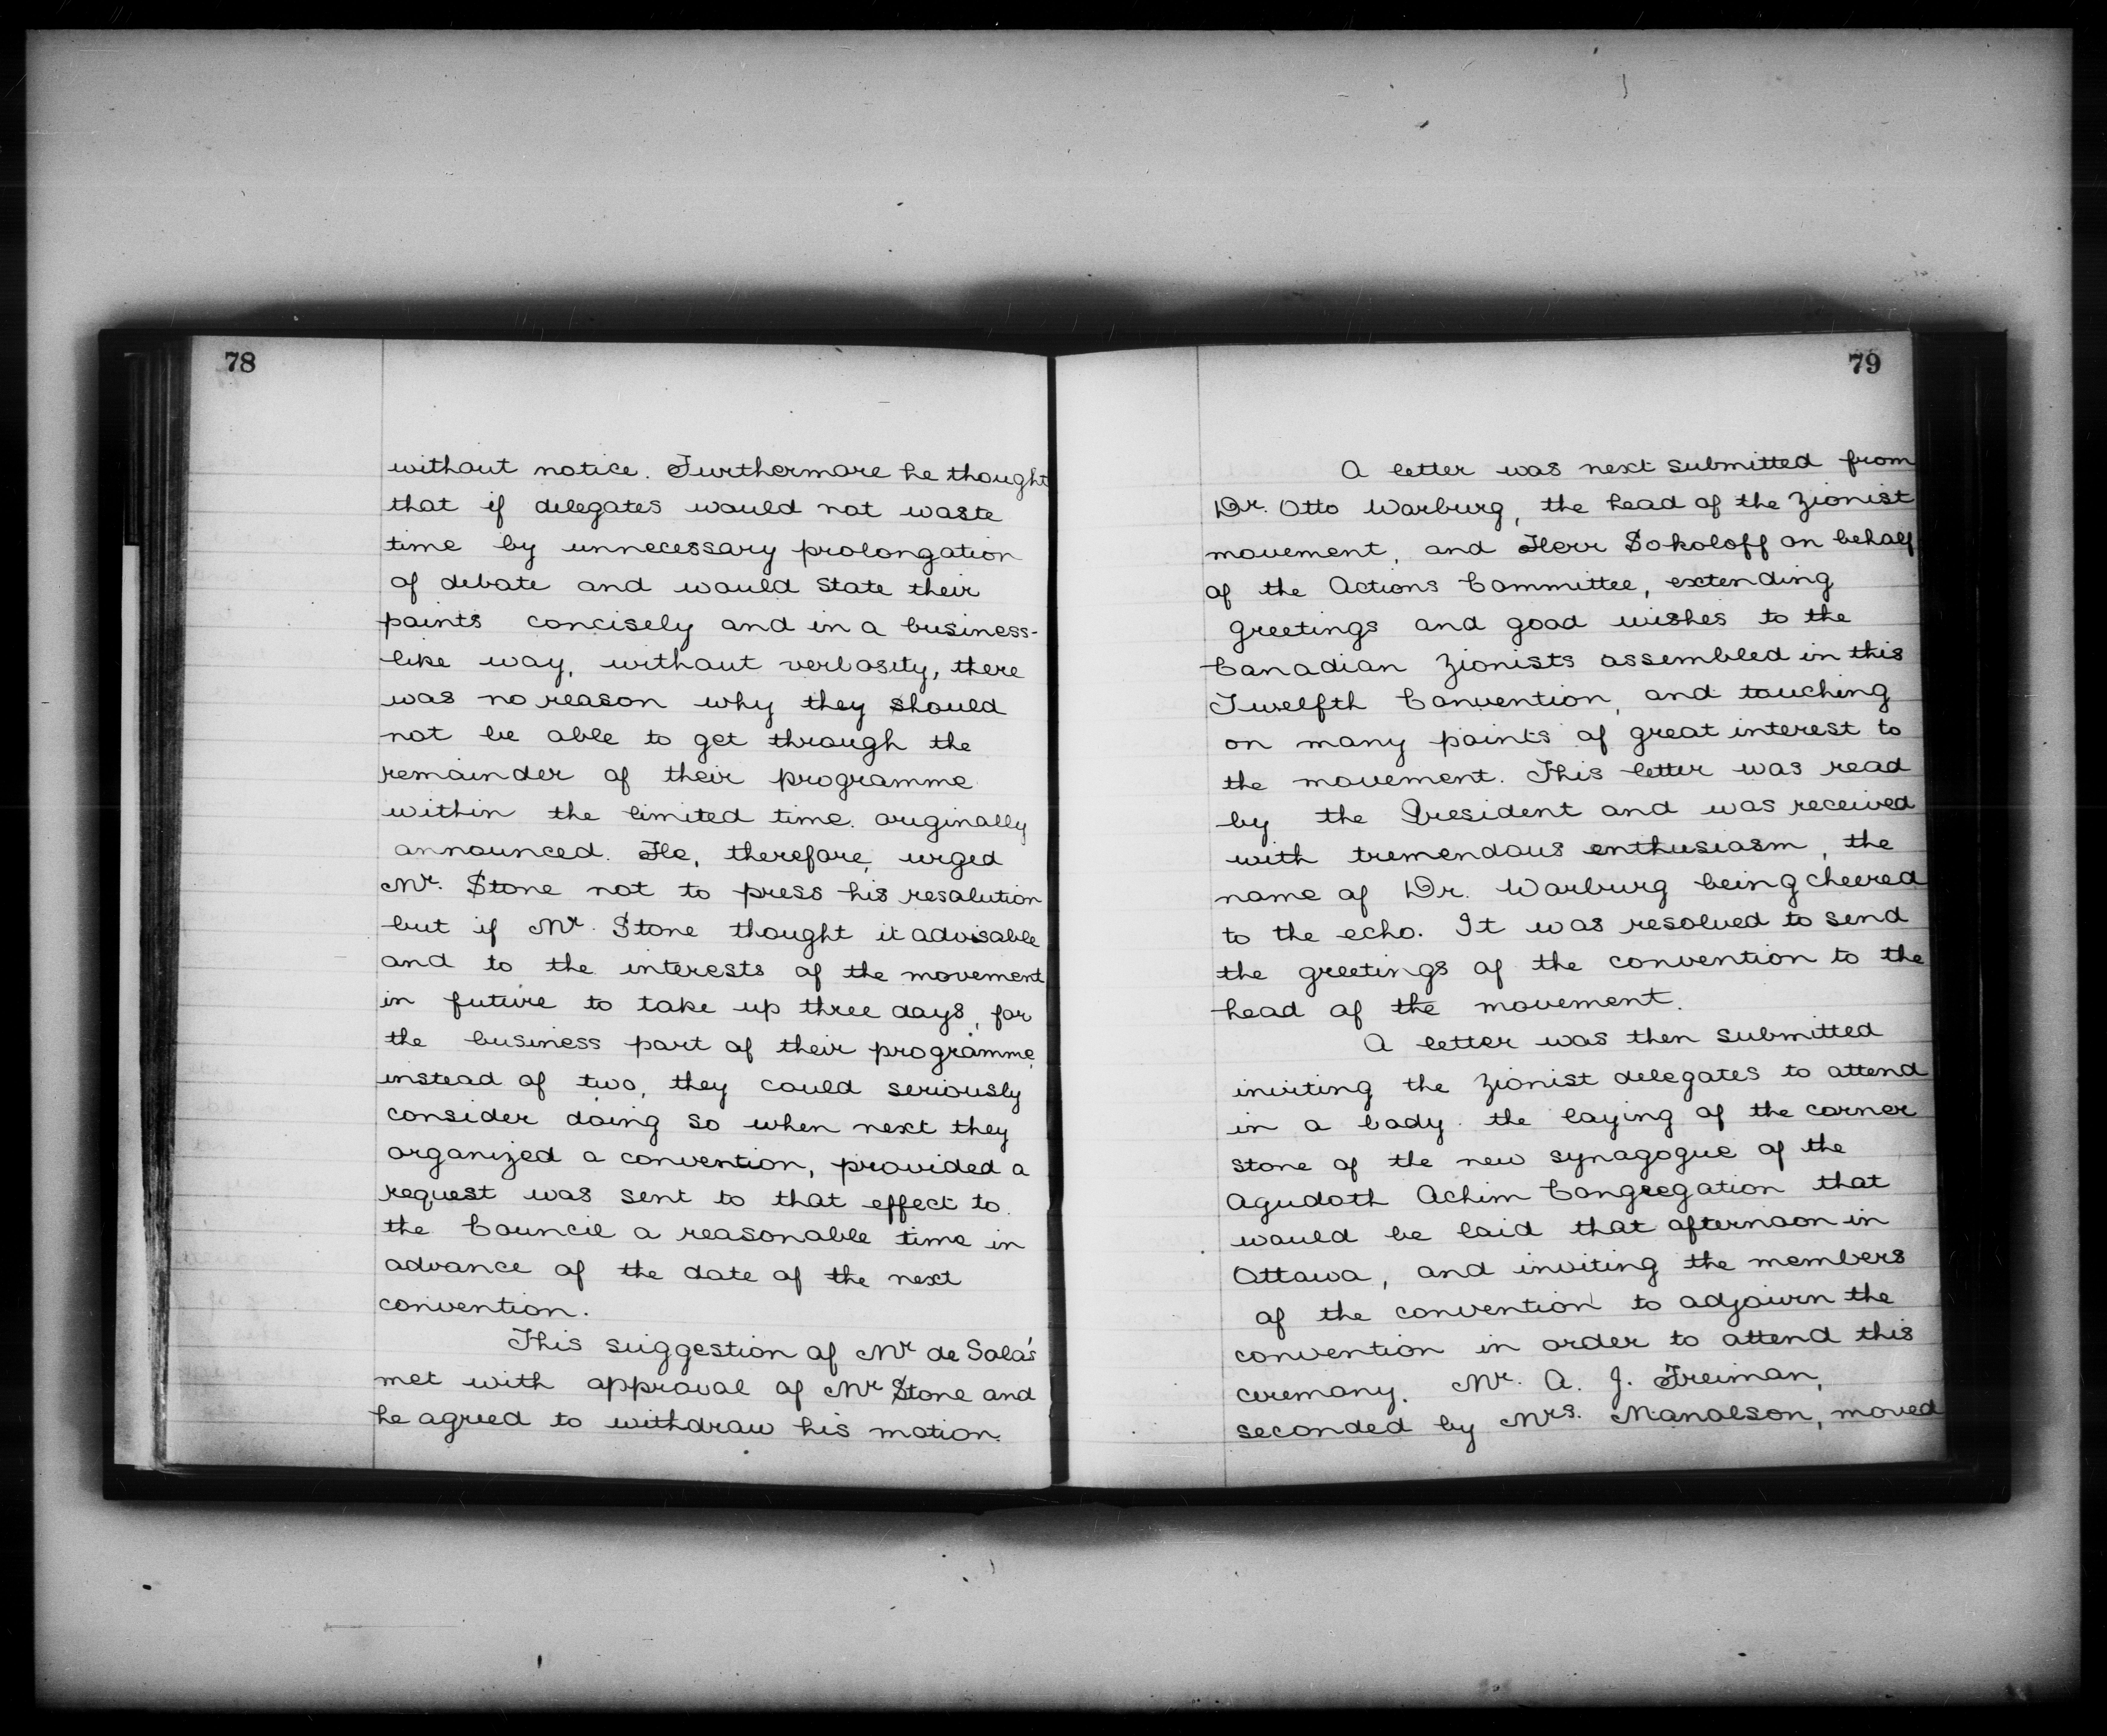 78
without notice. Furthermore he thought
that if delegates would not waste
time by unnecessary prolongation
of debate and would state their
points concisely and in a business-
like way, without verbosity, there
was no reason why they should
not be able to get through the
remainder of their programme
within the limited time originally
announced. He, therefore, urged
Mr. Stone not to press his resolution
but if Mr. Stone thought it advisable
and to the interests of the movement
in future to take up three days, for
the business part of their programme,
instead of two, they could seriously
consider doing so when next they
organized a convention, provided a
request was sent to that effect to
the Council a reasonable time in
advance of the date of the next
convention.
This suggestion of Mr de Sola's
met with approval of Mr Stone and
he agreed to withdraw his motion.
79
A letter was next submitted from
Dr. Otto Warburg, the head of the Zionist
movement, and Herr Sokoloff on behalf
of the Actions Committee, extending
greetings and good wishes to the
Canadian Zionists assembled in this
Twelfth Convention, and touching
on many points of great interest to
the movement. This letter was read
by the President and was received
with tremendous enthusiasm, the
name of Dr. Warburg being cheered
to the echo. It was resolved to send
the greetings of the convention to the
head of the movement.
A letter was then submitted
inviting the Zionist delegates to attend
in a body the laying of the corner
stone of the new synagogue of the
Agudath Achim Congregation that
would be laid that afternoon in
Ottawa, and inviting the members
of the convention to adjourn the
convention in order to attend this
ceremony. Mr. A. J. Freiman,
seconded by Mrs. Manolson, moved